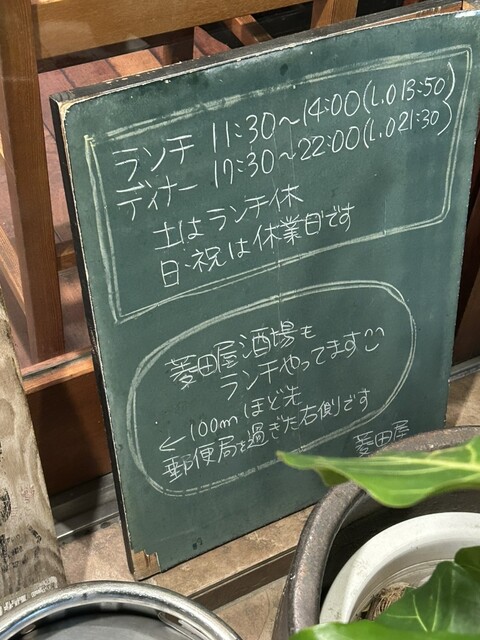 ランチ 11:30〜14:00(L.O 13:50)
ディナー 17:30〜22:00(L.O 21:30)
土はランチ休
日・祝は休業日です
菱田屋酒場も
ランチやってます
← 100mほど先
郵便局を過ぎた右側です
菱田屋